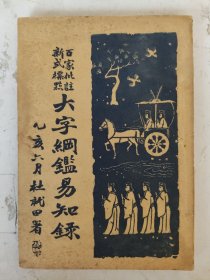 百家批註
新式標點
大字綱鑑易知錄
乙亥六月杜就田署